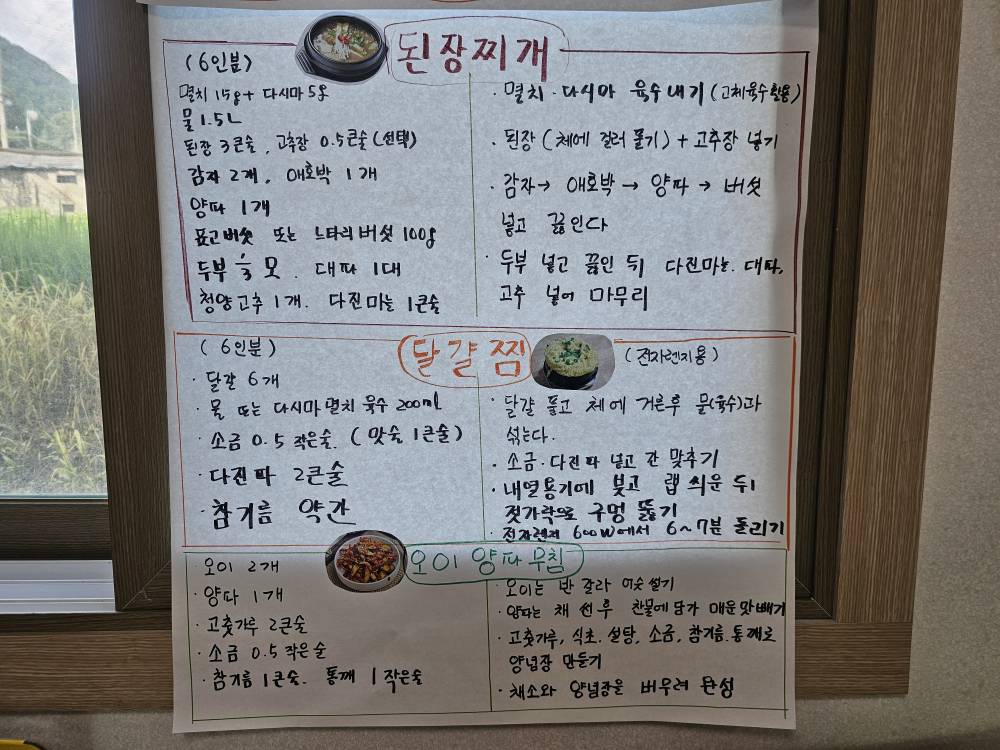 된장찌개
(6인분)
멸치 15g + 다시마 5g
물 1.5L
된장 3큰술, 고추장 0.5큰술(선택)
감자 2개, 애호박 1개
양파 1개
표고버섯 또는 느타리버섯 100g
두부 모. 대파 1대
청양고추 1개. 다진마늘 1큰술
· 멸치·다시마 육수내기(고체육수활용)
· 된장(체에 걸러 풀기) + 고추장 넣기
· 감자→ 애호박 → 양파 → 버섯
넣고 끓인다
· 두부 넣고 끓인 뒤 다진마늘. 대파,
고추 넣어 마무리
달걀찜
(6인분)
· 달걀 6개
· 물 또는 다시마멸치 육수 200mL
· 소금 0.5 작은술. (맛술 1큰술)
· 다진파 2큰술
· 참기름 약간
(전자렌지용)
· 달걀 풀고 체에 거른후 물(육수)과
섞는다.
· 소금·다진파 넣고 간 맞추기
· 내열용기에 붓고 랩 씌운 뒤
젓가락으로 구멍 뚫기
· 전자렌지 600W에서 6~7분 돌리기
오이양파무침
오이 2개
· 양파 1개
· 고춧가루 2큰술
· 소금 0.5 작은술
· 참기름 1큰술. 통깨 1작은술
· 오이는 반 갈라 어슷썰기
· 양파는 채 썬 후 찬물에 담가 매운맛빼기
· 고춧가루, 식초. 설탕, 소금, 참기름.통깨로
양념장 만들기
· 채소와 양념장을 버무려 완성